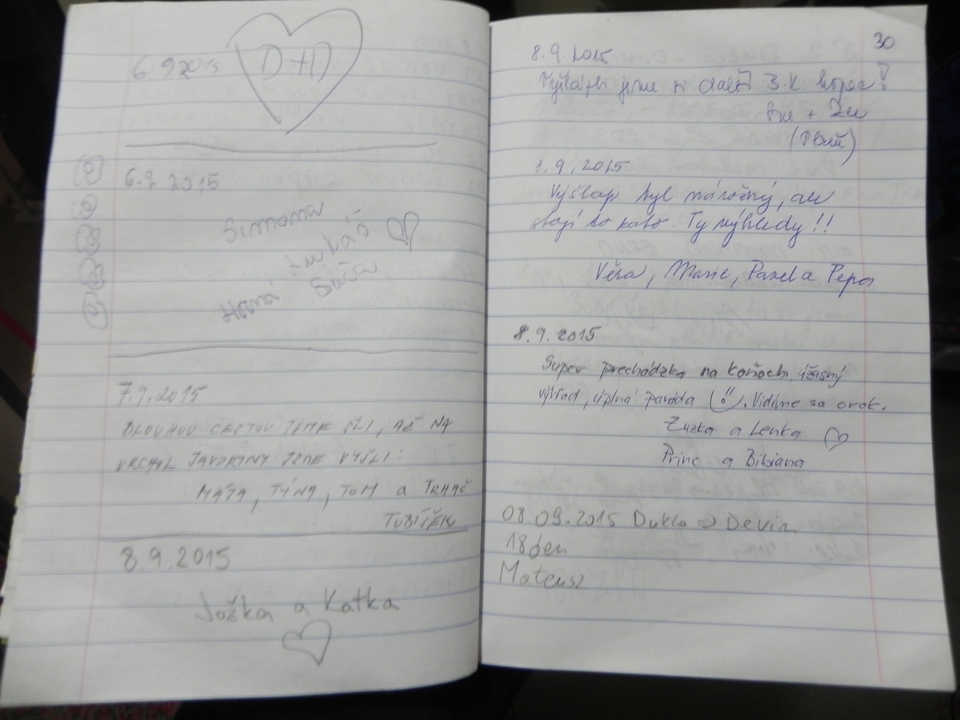 6.9 2015
D+D
6.9 2015
Simona
Lukáš
Hana
7.9.2015
DLOUHOU CESTOU JSME ŠLI, AŽ NA
VRCHOL JAVOŘINY JSME VYŠLI:
MÁJA, TÝNA, TOM a TRHAČ
TOBÍŠEK
8.9.2015
Jožka a Katka
30
8.9 2015
Vyšlápli jsme si další B.K. kopec!
(Plzeň)
8.9.2015
Výšlap byl náročný, ale
stojí to za to. Ty výhledy!!
Věra, Marie, Pavel a Pepa
8.9.2015
Super prechádzka na koňoch, úžasný
výhľad, úplná paráda. Vidíme sa o rok.
Zuzka a Lenka
Princ a Bibiana
08.09.2015 Dukla => Devin
18 den
Mateusz